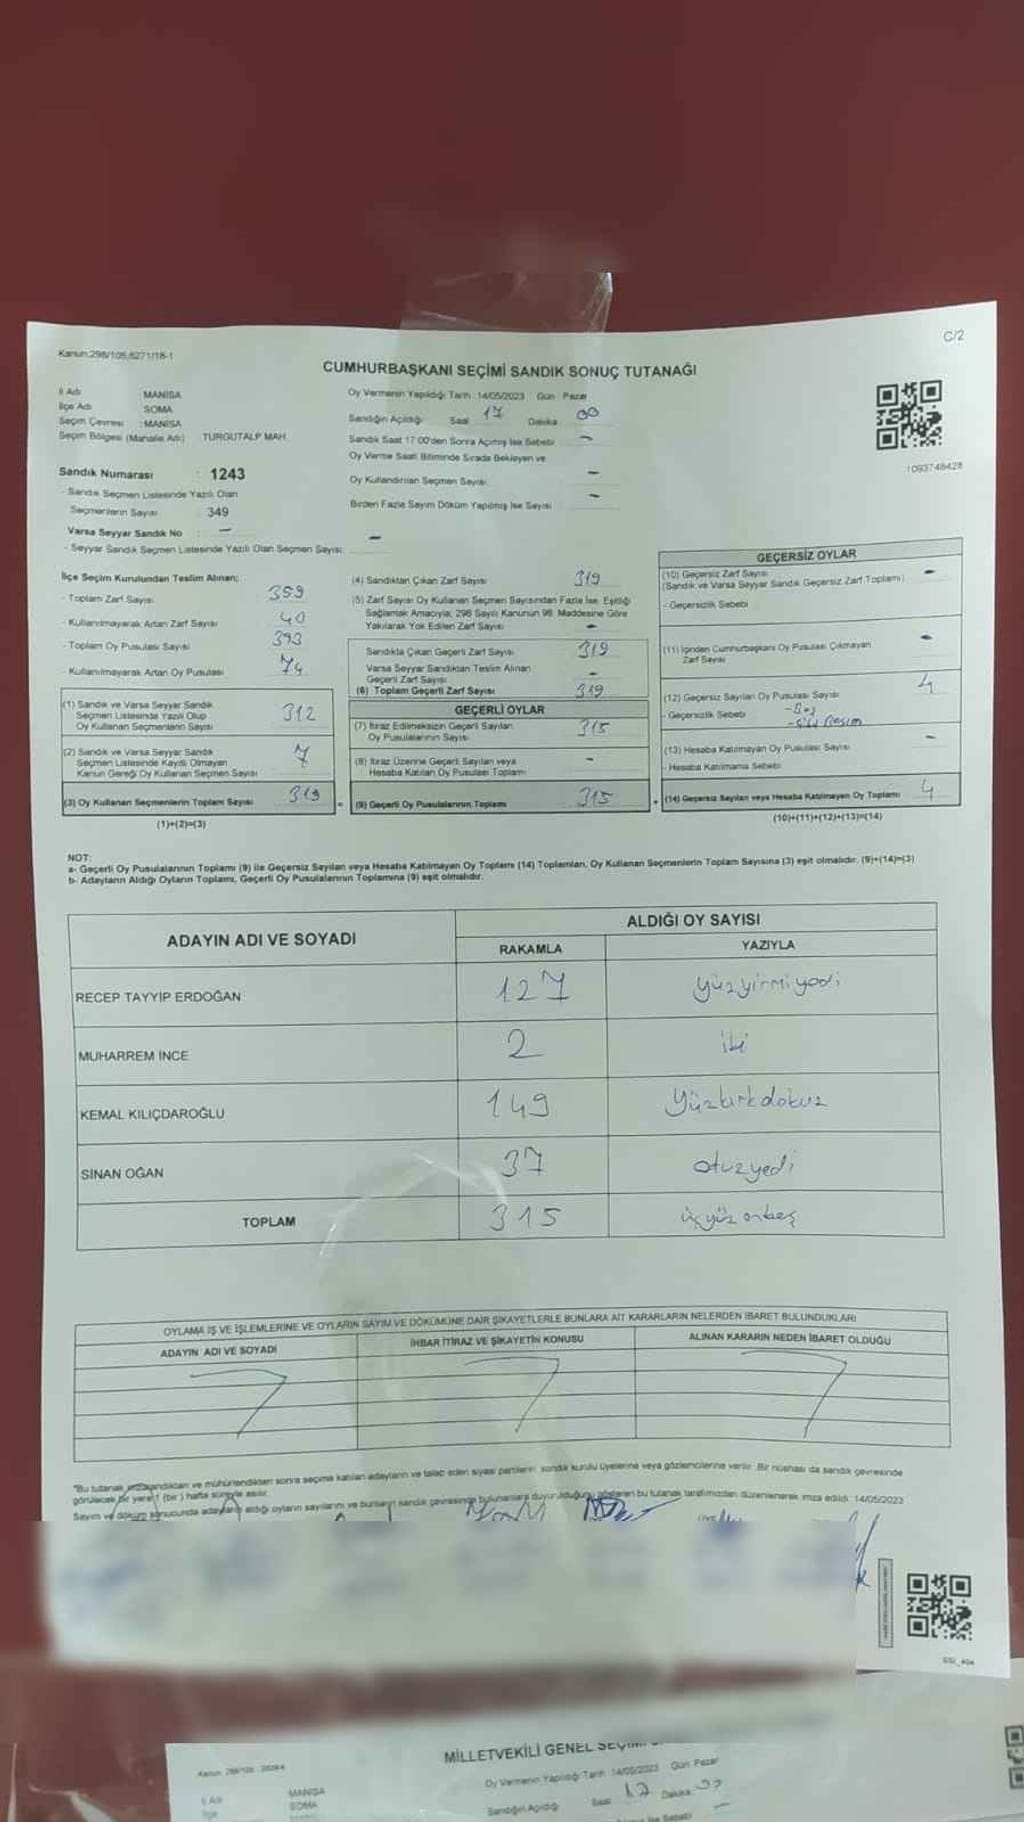 Kanun:298/105,6271/18-1
C/2
CUMHURBAŞKANI SEÇİMİ SANDIK SONUÇ TUTANAĞI
İl Adı MANİSA
İlçe Adı SOMA
Seçim Çevresi : MANİSA
Seçim Bölgesi (Mahalle Adı) TURGUTALP MAH.
Sandık Numarası : 1243
- Sandık Seçmen Listesinde Yazılı Olan
Seçmenlerin Sayısı : 349
Varsa Seyyar Sandık No : -
- Seyyar Sandık Seçmen Listesinde Yazılı Olan Seçmen Sayısı: -
Oy Vermenin Yapıldığı Tarih :14/05/2023 Gün : Pazar
Sandığın Açıldığı Saat 17 Dakika 00
Sandık Saat 17:00'den Sonra Açılmış İse Sebebi -
Oy Verme Saati Bitiminde Sırada Bekleyen ve
Oy Kullandırılan Seçmen Sayısı -
Birden Fazla Sayım Döküm Yapılmış İse Sayısı -
1093748428
İlçe Seçim Kurulundan Teslim Alınan;
- Toplam Zarf Sayısı 359
- Kullanılmayarak Artan Zarf Sayısı 40
- Toplam Oy Pusulası Sayısı 393
- Kullanılmayarak Artan Oy Pusulası 74
(1) Sandık ve Varsa Seyyar Sandık
Seçmen Listesinde Yazılı Olup
Oy Kullanan Seçmenlerin Sayısı 312
(2) Sandık ve Varsa Seyyar Sandık
Seçmen Listesinde Kaydı Olmayan
Kanun Gereği Oy Kullanan Seçmen Sayısı 7
(3) Oy Kullanan Seçmenlerin Toplam Sayısı 319
(1)+(2)=(3)
(4) Sandıktan Çıkan Zarf Sayısı 319
(5) Zarf Sayısı Oy Kullanan Seçmen Sayısından Fazla İse, Eşitliği
Sağlamak Amacıyla, 298 Sayılı Kanunun 98. Maddesine Göre
Yakılarak Yok Edilen Zarf Sayısı -
Sandıkta Çıkan Geçerli Zarf Sayısı 319
Varsa Seyyar Sandıktan Teslim Alınan
Geçerli Zarf Sayısı -
(6) Toplam Geçerli Zarf Sayısı 319
GEÇERLİ OYLAR
(7) İtiraz Edilmeksizin Geçerli Sayılan
Oy Pusulalarının Sayısı 315
(8) İtiraz Üzerine Geçerli Sayılan veya
Hesaba Katılan Oy Pusulası Toplamı -
= (9) Geçerli Oy Pusulalarının Toplamı 315
GEÇERSİZ OYLAR
(10) Geçersiz Zarf Sayısı -
(Sandık ve Varsa Seyyar Sandık Geçersiz Zarf Toplamı)
- Geçersizlik Sebebi
(11) İçinden Cumhurbaşkanı Oy Pusulası Çıkmayan
Zarf Sayısı -
(12) Geçersiz Sayılan Oy Pusulası Sayısı 4
- Geçersizlik Sebebi -Boş
(13) Hesaba Katılmayan Oy Pusulası Sayısı -
- Hesaba Katılmama Sebebi
+ (14) Geçersiz Sayılan veya Hesaba Katılmayan Oy Toplamı 4
(10)+(11)+(12)+(13)=(14)
NOT:
a- Geçerli Oy Pusulalarının Toplamı (9) ile Geçersiz Sayılan veya Hesaba Katılmayan Oy Toplamı (14) Toplamları, Oy Kullanan Seçmenlerin Toplam Sayısına (3) eşit olmalıdır. (9)+(14)=(3)
b- Adayların Aldığı Oyların Toplamı, Geçerli Oy Pusulalarının Toplamına (9) eşit olmalıdır.
ADAYIN ADI VE SOYADI ALDIĞI OY SAYISI
RAKAMLA YAZIYLA
RECEP TAYYİP ERDOĞAN 127 yüzyirmiyedi
MUHARREM İNCE 2 iki
KEMAL KILIÇDAROĞLU 149 Yüzkırkdokuz
SİNAN OĞAN 37 otuzyedi
TOPLAM 315 üçyüz onbeş
OYLAMA İŞ VE İŞLEMLERİNE VE OYLARIN SAYIM VE DÖKÜMÜNE DAİR ŞİKAYETLERLE BUNLARA AİT KARARLARIN NELERDEN İBARET BULUNDUKLARI
ADAYIN ADI VE SOYADI İHBAR İTİRAZ VE ŞİKAYETİN KONUSU ALINAN KARARIN NEDEN İBARET OLDUĞU
"Bu tutanak imzalandıktan ve mühürlendikten sonra seçime katılan adayların ve talep eden siyasi partilerin sandık kurulu üyelerine veya gözlemcilerine verilir. Bir nüshası da sandık çevresinde
görülecek bir yere 1 (bir) hafta süreyle asılır.
Sayım ve döküm sonucunda adayların aldığı oyların sayılarını ve bunların sandık çevresinde bulunanlara duyurulduğunu gösteren bu tutanak tarafımızdan düzenlenerek imza edildi. 14/05/2023
MİLLETVEKİLİ GENEL
Oy Vermenin Yapıldığı Tarih :14/05/2023 Gün : Pazar
İl Adı MANİSA
SOMA
Sandığın Açıldığı Saat 17 Dakika